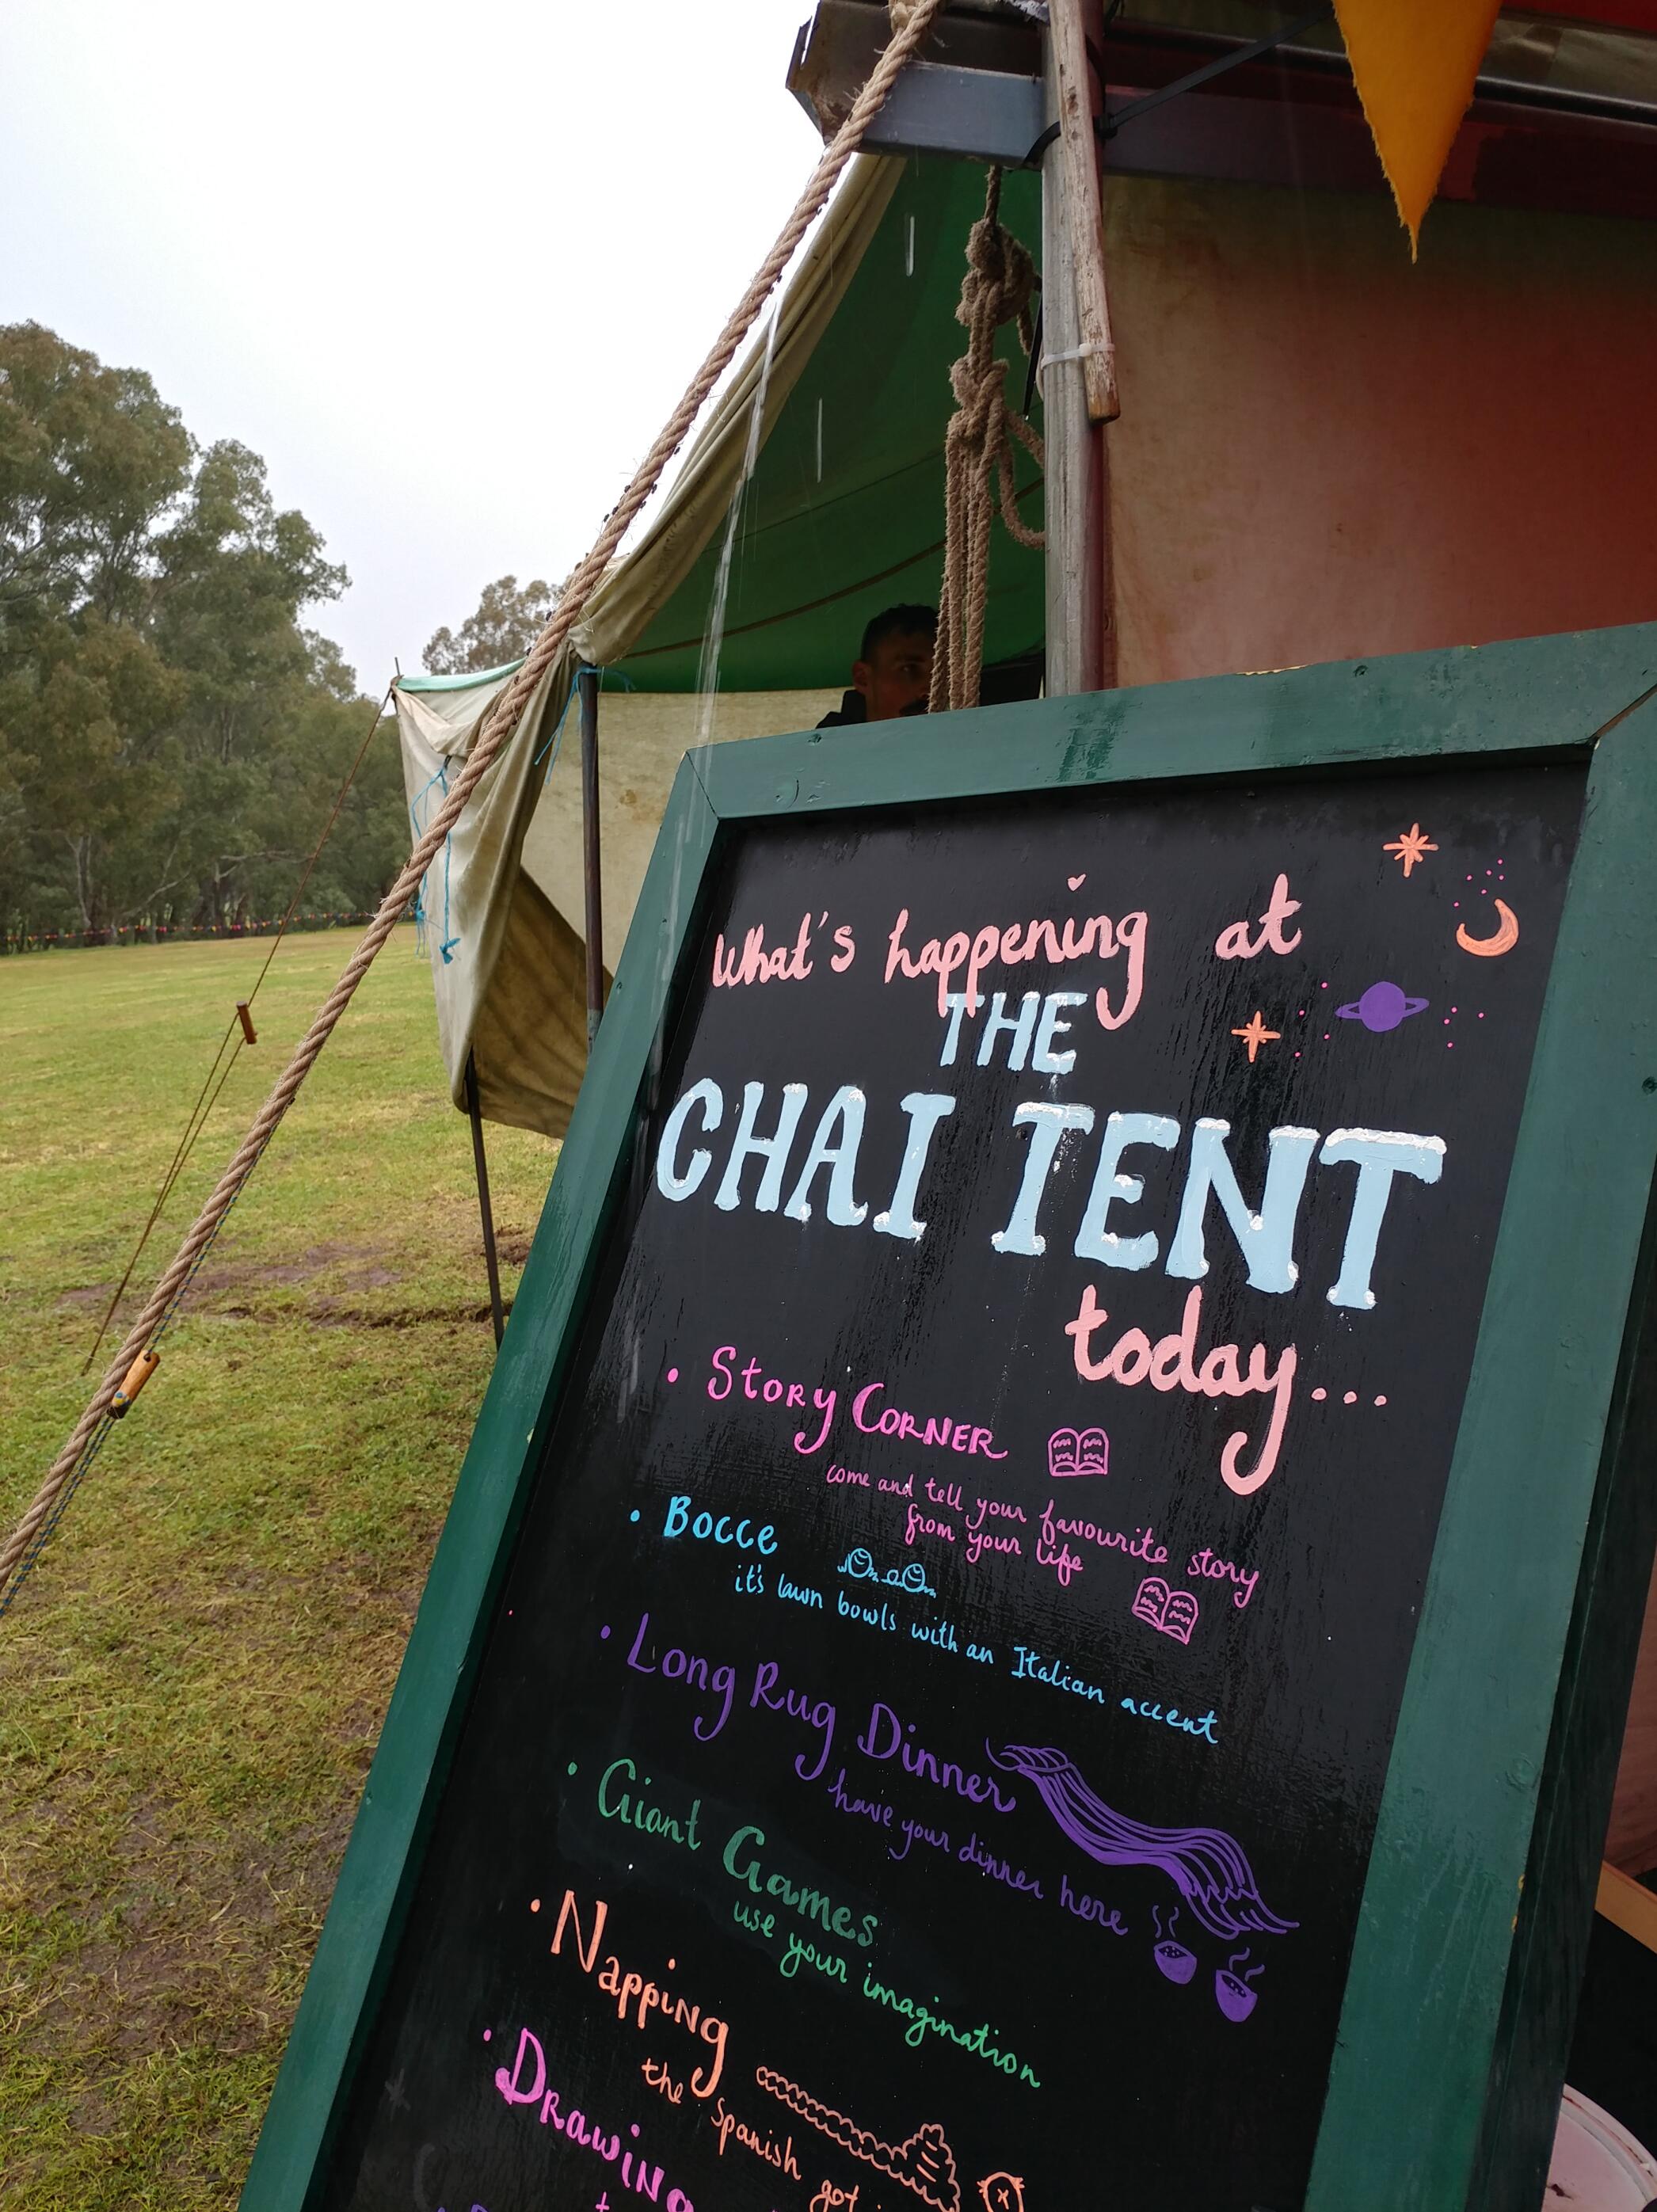 What's happening at
THE
CHAI TENT
today...
• Story Corner
come and tell your favourite story
from your life
• Bocce
it's lawn bowls with an Italian accent
• Long Rug Dinner
have your dinner here
• Giant Games
use your imagination
• Napping
the Spanish got
• Drawing